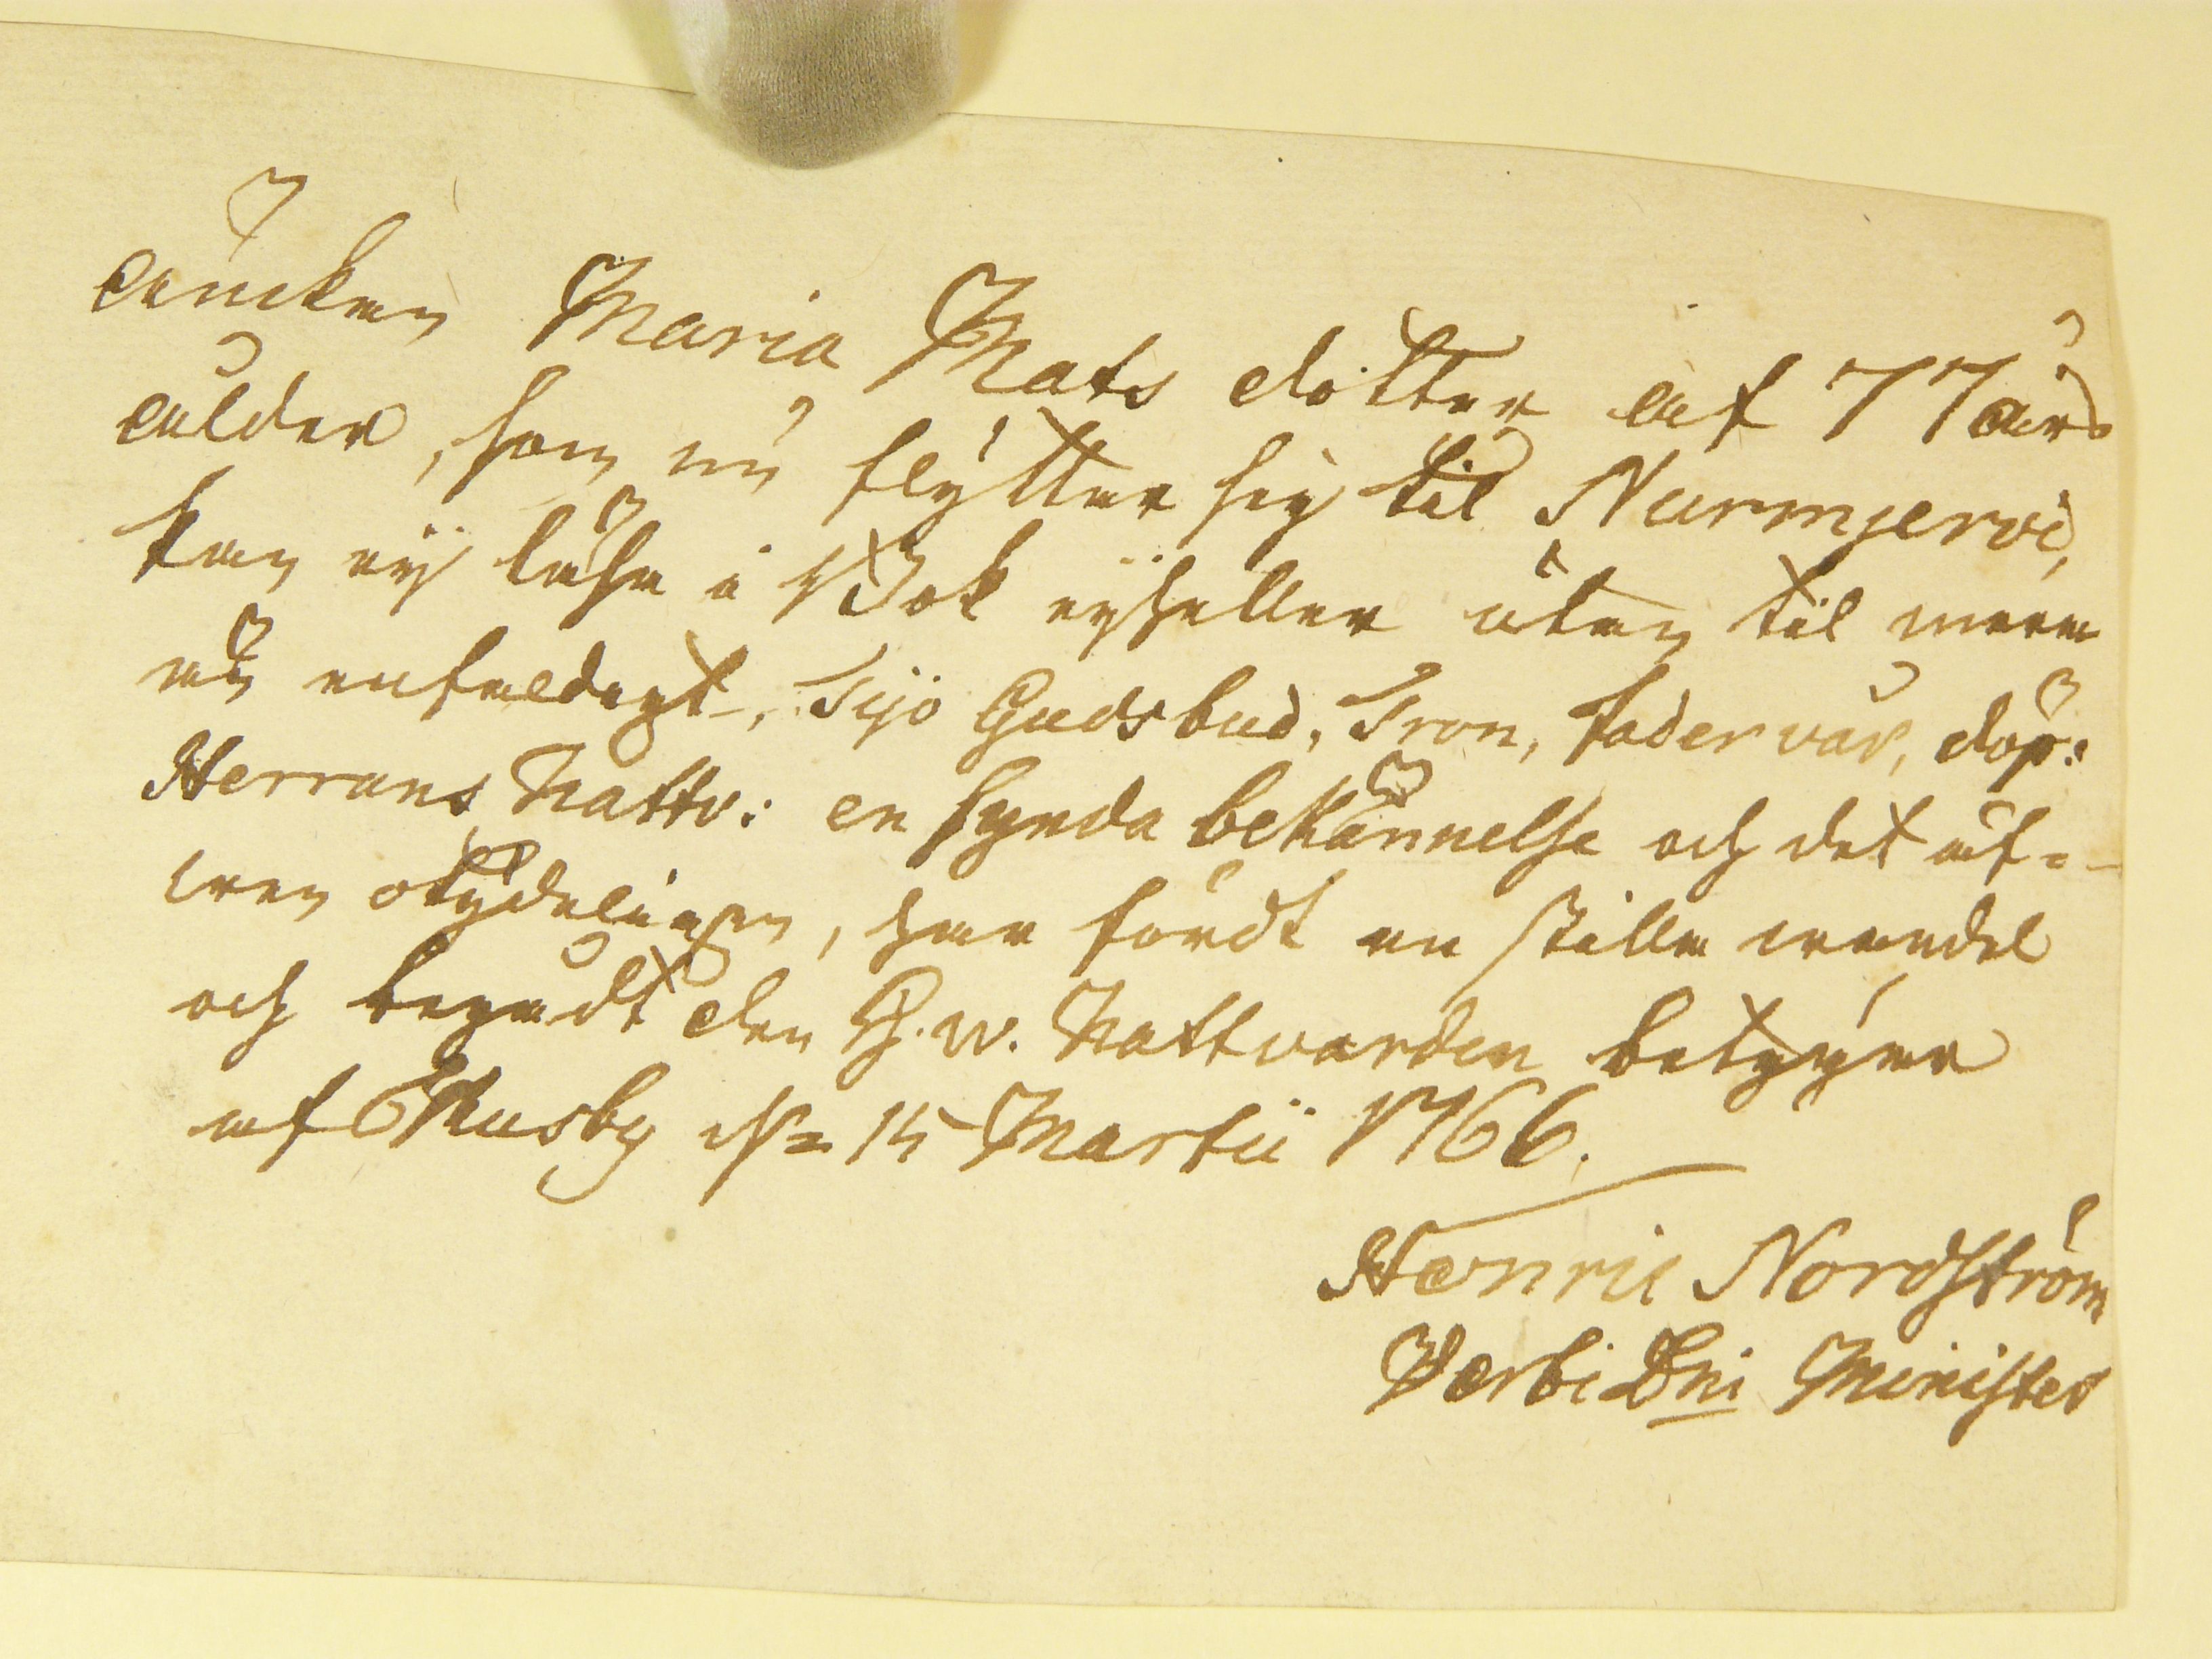 änckan Maria Mats dotter af 77 års
ålder, som nu flytter sig til Nurmjervi,
kan ej läsa i Bok ejheller utan til mera
än enfaldigt, Tijo Guds bud, Tron, fader vår, döp:
Herrans Nattv: en synda bekännelse och det äf=
wen otydeligen, har fördt en stilla wandel
och begådt den H. w. Nattvarden betygar
af Husby d. 15 Martii 1766.
Henric Nordström
Verbi Dni Minister